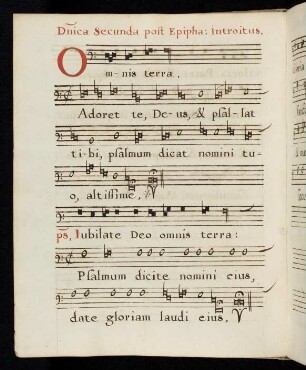 Dñica Secunda post Epipha: Introitus.
Omnis terra.
Adoret te, De-us, & psal-lat
ti-bi, psalmum dicat nomini tu-
o, altissime.
ps, Iubilate Deo omnis terra:
Psalmum dicite nomini eius,
date gloriam laudi eius.